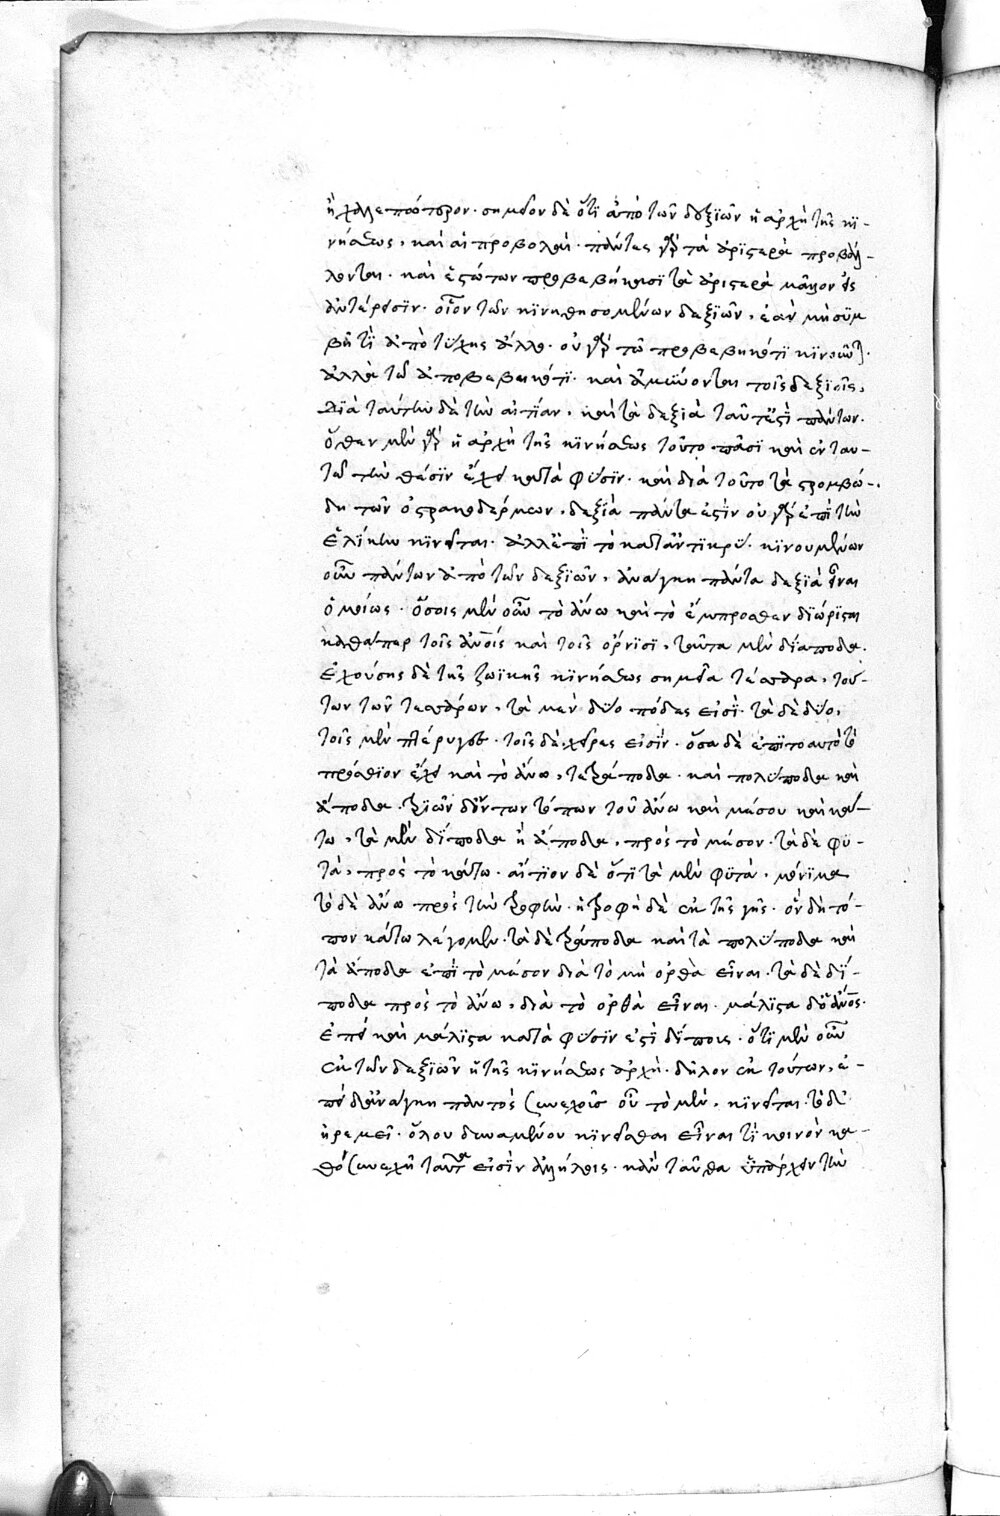 ἢ χαλεπώτερον. σημεῖον δὲ ὅτι ἀπὸ τῶν δεξιῶν ἡ ἀρχὴ τῆς κϊ-
νήσεως, καὶ αἱ προβολαί· πάντες γὰρ τὰ ἀρϊστερὰ προβάλ-
λονται. καὶ ἑστώτων προβεβήκασϊ τὰ ἀριστερὰ μᾶλλον εἰς
ἀντέρεισϊν. οἷον τῶν κϊνηθησομένων δεξϊῶν, ἐὰν μὴ σϋμ
βῆ τϊ ἀπὸ τύχης ἄλλο. οὐ γὰρ τῶ προβεβηκότι κϊνοῦνται.
ἀλλὰ τῶ ἀποβεβηκότϊ. καὶ ἀμύνονται τοῖς δεξιοῖς.
διὰ ταύτην δὲ τὴν αἰτίαν, καὶ τὰ δεξιὰ ταῦτά ἐστϊ πάντων.
ὅθεν μὲν γὰρ ἡ ἀρχὴ τῆς κϊνήσεως τοῦτο πᾶσϊ καὶ ἐν ταυ-
τῶ τὴν θέσϊν ἔχει κατὰ φύσϊν. καὶ διὰ τοῦτο τὰ στρομβώ-
δη τῶν ὀστρακοδέρμων, δεξϊὰ πάντα ἐστϊν οὐ γὰρ ἐπὶ τὴν
ἑλίκην κϊνεῖται. ἀλλ' ἐπὶ τὸ καταντϊκρύ. κϊνουμένων
οὖν πάντων ἀπὸ τῶν δεξϊῶν, ἀνάγκη πάντα δεξϊὰ εἶναι
ὁμοίως. ὅσοις μὲν οὖν τὸ ἄνω καὶ τὸ ἔμπροσθεν διώρϊσται
καθάπερ τοῖς ἀνοις καὶ τοῖς ὄρνϊσϊ, ταῦτα μὲν δίποδα.
ἐχούσης δὲ τῆς ζωϊκῆς κϊνήσεως σημεῖα τέσσαρα, τού-
των τῶν τεσσάρων, τὰ μὲν δύο πόδες εἰσϊ. τὰ δὲ δύο,
τοῖς μὲν πτέρυγες. τοῖς δὲ, χεῖρες εἰσϊν. ὅσα δὲ ἐπϊτοαυτὸ τὸ
πρόσθϊον ἔχει καὶ τὸ ἄνω, τετράποδα. καὶ πολύποδα καὶ
ἄποδα. τρϊῶν ὄντων τόπων τοῦ ἄνω καὶ μέσου καὶ κά-
τω, τὰ μὲν δίποδα ἢ ἄποδα, πρὸς τὸ μέσον. τὰ δὲ φϋ-
τὰ, πρὸς τὸ κάτω. αἴτϊον δὲ ὅτϊ τὰ μὲν φϋτὰ, μόνϊμα
τὸ δὲ ἄνω πρὸς τὴν τροφὴν. ἡ τροφὴ δὲ ἐκ τῆς γῆς. ὃν δὴ τό-
πον κάτω λέγομεν. τὰ δὲ τετράποδα καὶ τὰ πολύποδα καὶ
τὰ ἄποδα ἐπὶ τὸ μέσον διὰ τὸ μὴ ὀρθὰ εἶναι. τὰ δὲ δί-
ποδα πρὸς τὸ ἄνω, διὰ τὸ ὀρθὰ εἶναι. μάλϊστα δ' ὁ ἄνος.
ἐπεὶ καὶ μάλϊστα κατὰ φύσϊν ἐστὶ δίπους. ὅτϊ μὲν οὖν
ἐκ τῶν δεξϊῶν ἡ τῆς κϊνήσεως ἀρχὴ. δῆλον ἐκ τούτων, ἐ-
πεὶ δ' ἀνάγκη παντὸς συνεχοῦς οὗ τὸ μὲν, κϊνεῖται. τὸ δὲ
ἠρεμεῖ. ὅλου δυναμένου κϊνεῖσθαι εἶναι τϊ κοινὸν κα-
θὸ συνεχῆ ταῦτα εἰσϊν ἀλλήλοις. κἀνταῦθα ὑπάρχειν τὴν